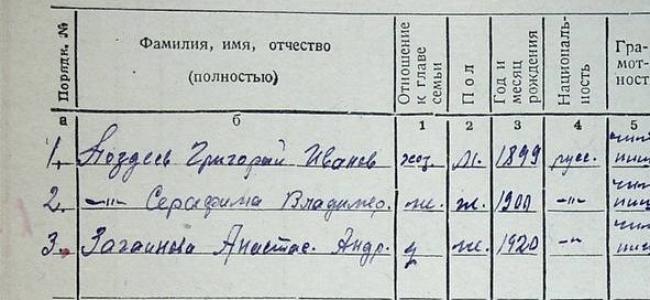 Порядк. № Фамилия, имя, отчество (полностью) Отношение к главе семьи Пол Год и месяц рождения Националь-ность Гра-мот-ност
а б 1 2 3 4 5
1. Поздеев Григорий Иванов хоз. м. 1899 русс. чит пиш
2. —"— Серафима Владимир. ж. ж. 1900 —"— чит пиш
3. Загаинова Анастас. Андр. д ж. 1920 —"— чит пиш